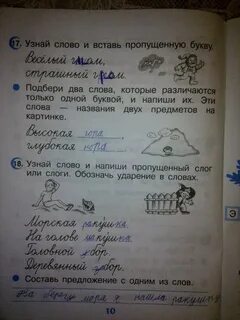 17. Узнай слово и вставь пропущенную букву.
Весёлый гном,
страшный гром.
Подбери два слова, которые различаются
только одной буквой, и напиши их. Эти
слова — названия двух предметов на
картинке.
Высокая гора
глубокая нора.
18. Узнай слово и напиши пропущенный слог
или слоги. Обозначь ударение в словах.
Морская ракушка.
На голове макушка.
Головной убор.
Деревянный забор.
Составь предложение с одним из слов.
На берегу моря я нашла ракушку
10
Э